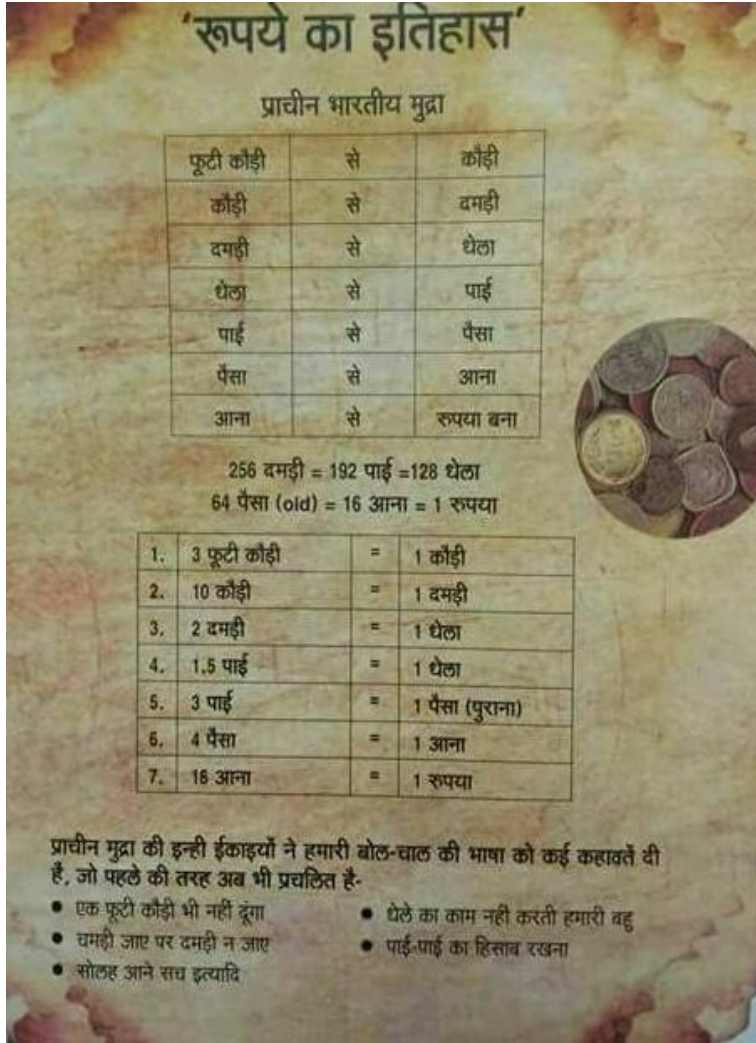 ‘रूपये का इतिहास’
प्राचीन भारतीय मुद्रा
फूटी कौड़ी से कौड़ी
कौड़ी से दमड़ी
दमड़ी से धेला
धेला से पाई
पाई से पैसा
पैसा से आना
आना से रुपया बना
256 दमड़ी = 192 पाई =128 धेला
64 पैसा (old) = 16 आना = 1 रुपया
1. 3 फूटी कौड़ी = 1 कौड़ी
2. 10 कौड़ी = 1 दमड़ी
3. 2 दमड़ी = 1 धेला
4. 1.5 पाई = 1 धेला
5. 3 पाई = 1 पैसा (पुराना)
6. 4 पैसा = 1 आना
7. 16 आना = 1 रुपया
प्राचीन मुद्रा की इन्ही ईकाइयों ने हमारी बोल-चाल की भाषा को कई कहावतें दी
हैं, जो पहले की तरह अब भी प्रचलित है-
• एक फूटी कौड़ी भी नहीं दूंगा
• चमड़ी जाए पर दमड़ी न जाए
• सोलह आने सच इत्यादि
• धेले का काम नही करती हमारी बहु
• पाई-पाई का हिसाब रखना